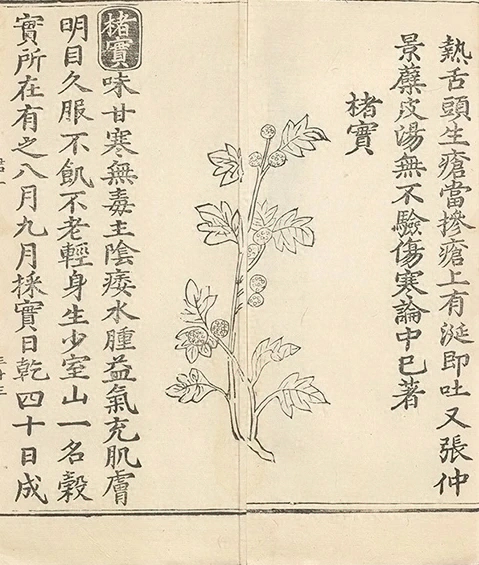 熱舌頭生瘡當摻瘡上有涎即吐又張仲
景蘗皮湯無不驗傷寒論中已著
楮實
楮實味甘寒無毒主陰痿水腫益氣充肌膚
明目久服不飢不老輕身生少室山一名穀
實所在有之八月九月採實日乾四十日成